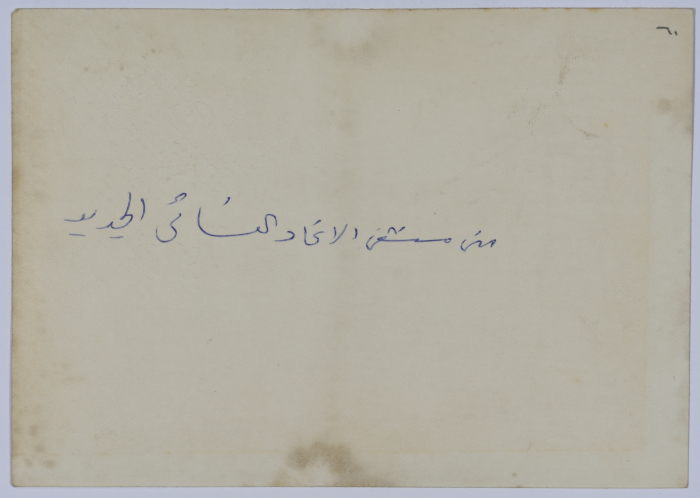 ٦٠
مبنى مستشفى الاتحاد النسائي الجديد